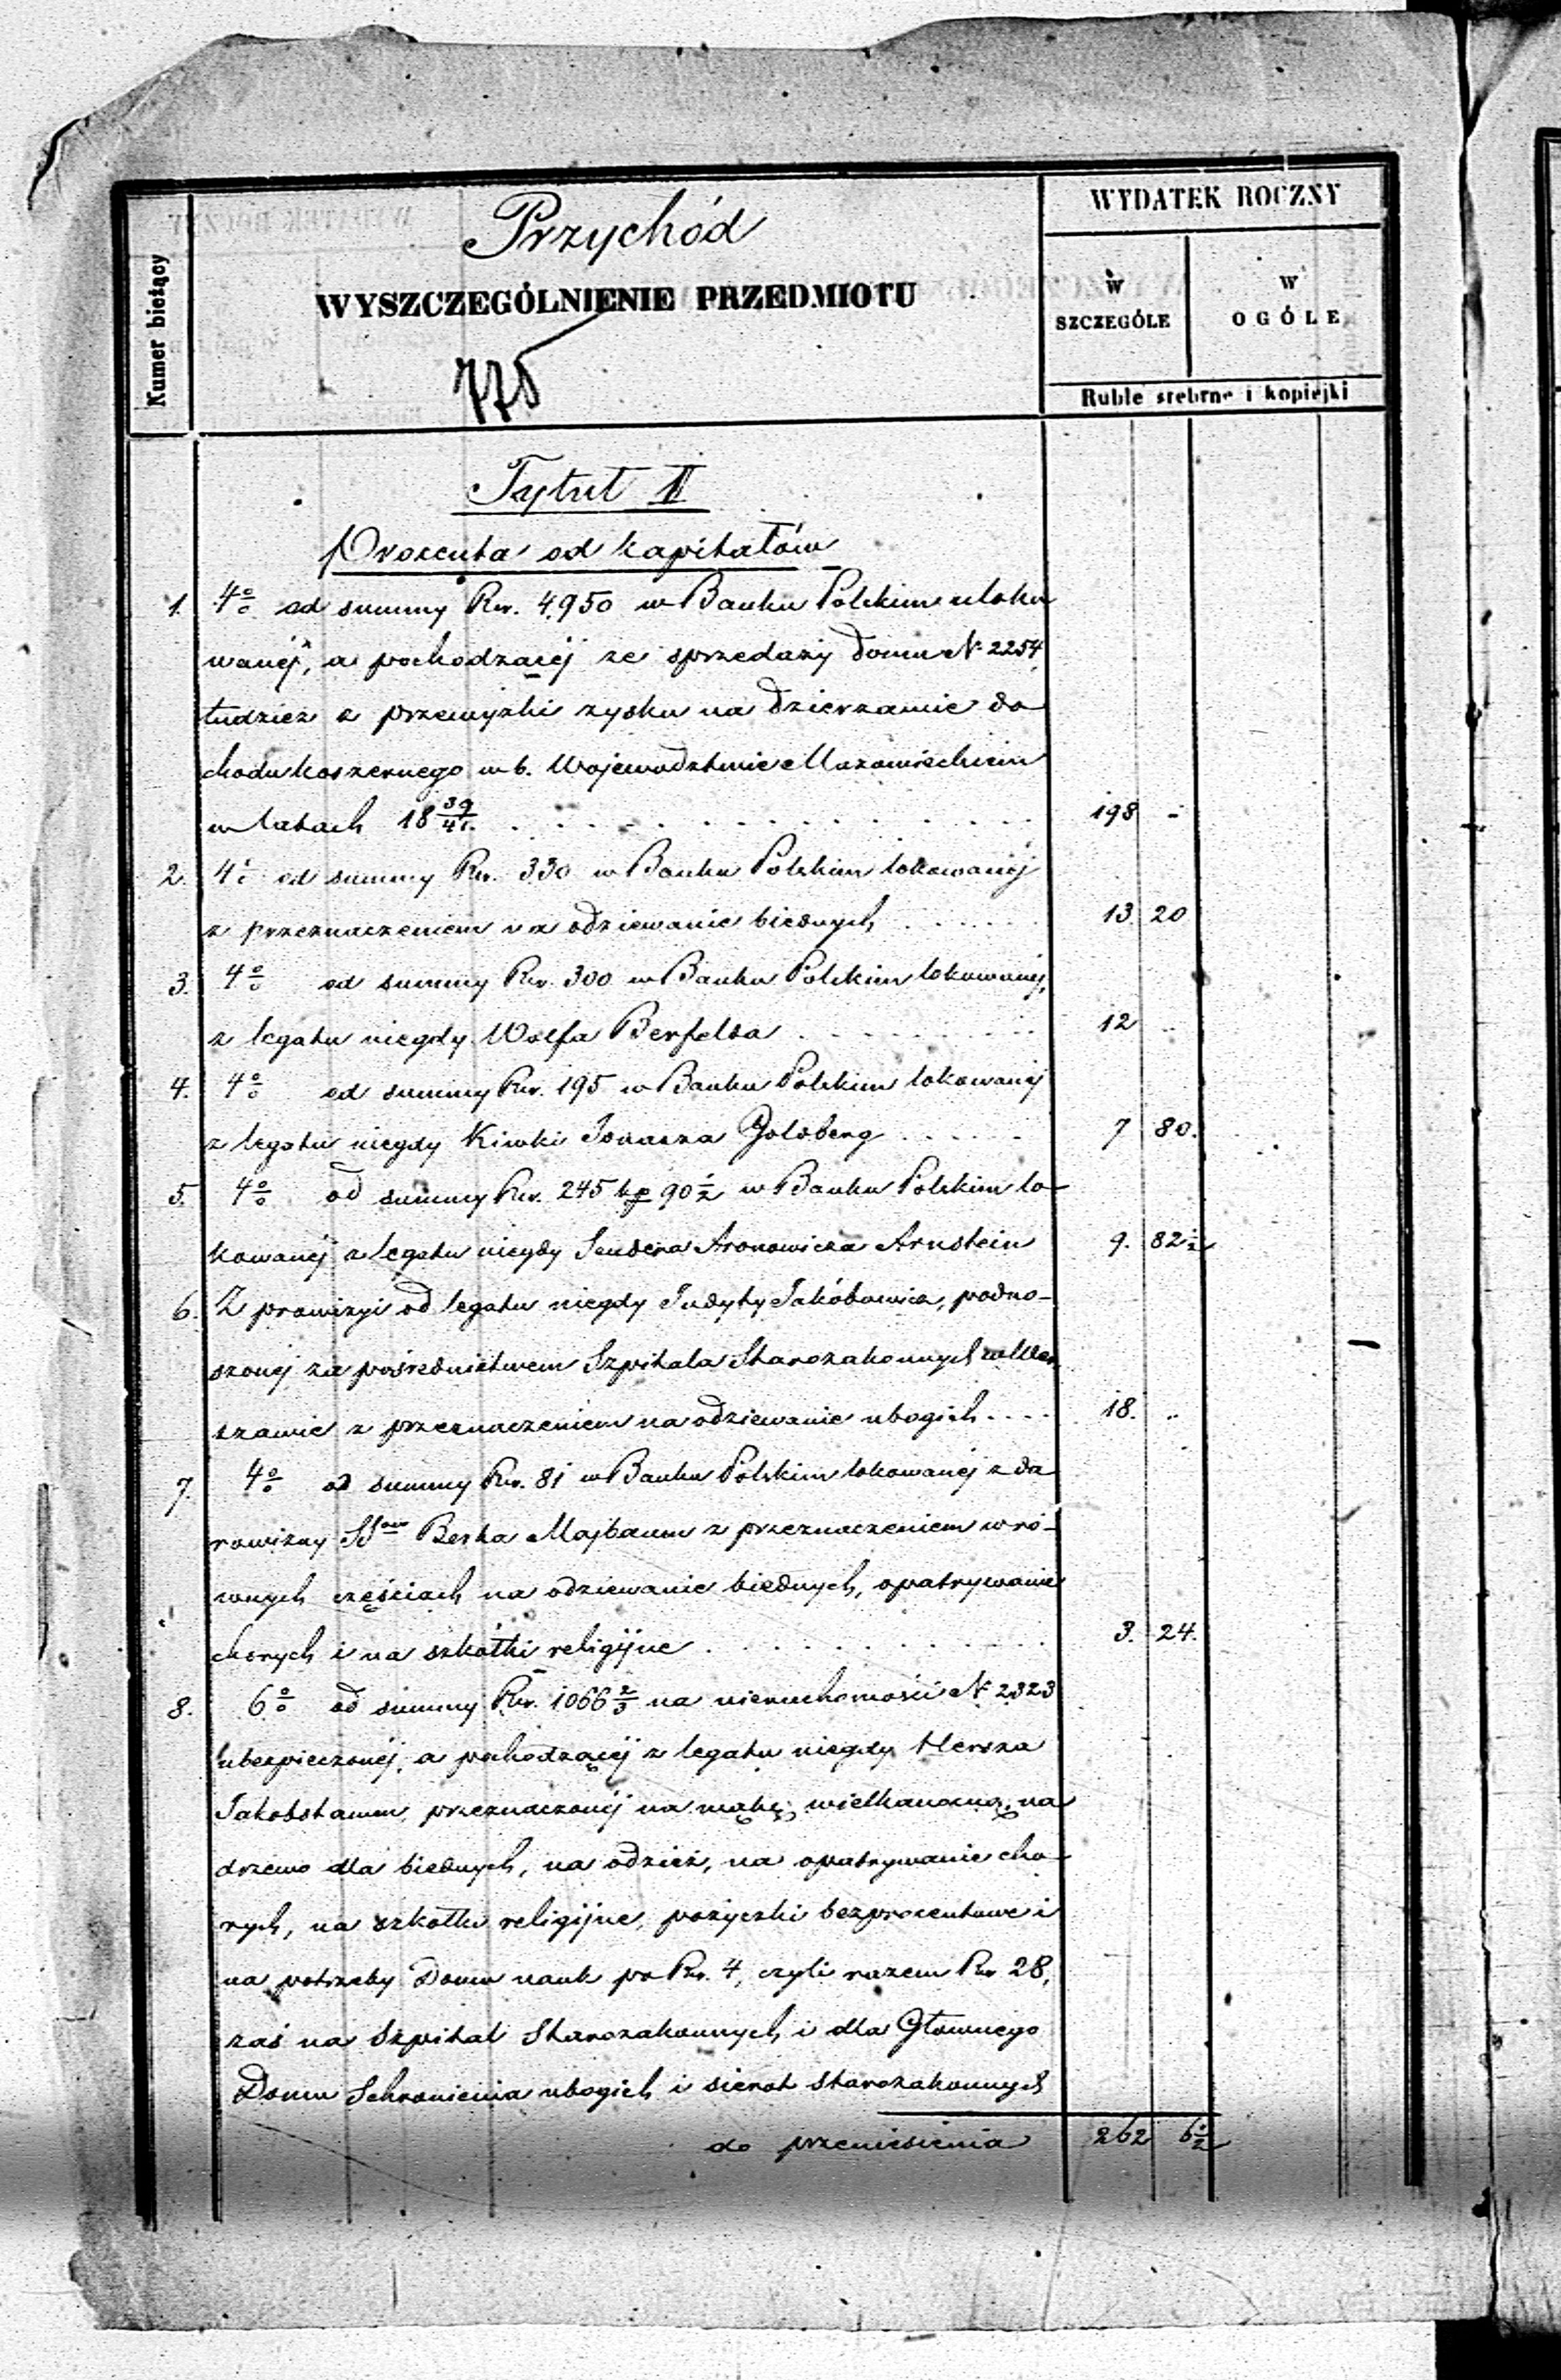 Przychód
Kumer bieżący
WYSZCZEGÓLNIENIE PRZEDMIOTU
WYDATEK ROCZNY
W SZCZEGÓLE
W OGÓLE
Ruble srebrne i kopiejki
775
Tytuł II
Procenta od kapitałów
1. 4% od summy Rsr. 4,950 w Banku Polskim uloko
wanéj, a pochodzącéj ze sprzedaży domu № 2254,
tudzież z przewyżki zysku na dzierżawie do
chodu koszernego w b. Województwie Mazowieckiem
w latach 18 39/41. 198 -
2. 4% od summy Rsr. 330 w Banku Polskim lokowanéj
z przeznaczeniem na odziewanie biednych 13 20
3. 4% od summy Rsr. 300 w Banku Polskim lokowanéj,
z legatu niegdy Wolfa Berfelda 12 ..
4. 4% od summy Rsr. 195 w Banku Polskim lokowanéj
z legatu niegdy Kiwki Jonasza Goldberg 7 80.
5. 4% od summy Rsr. 245 kp 90 1/2 w Banku Polskim lo-
kowanéj z legatu niegdy Sendera Aronowicza Arnstein 9. 82 1/2
6. Z prowizyi od legatu niegdy Judyty Jakóbowicz, podno-
szonéj za pośrednictwem Szpitala Starozakonnych w War
szawie z przeznaczeniem na odziewanie ubogich 18. ..
7. 4% od summy Rsr. 81 w Banku Polskim lokowanéj z da
rowizny Berka Majbaum z przeznaczeniem w ró-
wnych częściach na odziewanie biednych, opatrywanie
chorych i na szkółki religijne 3. 24.
8. 6% od summy Rsr. 1066 2/3 na nieruchomości № 2323
ubezpieczonéj, a pochodzącéj z legatu niegdy Hersza
Jakobstamm, przeznaczonéj na mąkę wielkanocną, na
drzewo dla biednych, na odzież, na opatrywanie cho-
rych, na szkółki religijne, pożyczki bezprocentowe i
na potrzeby Domu nauk po Rsr. 4, czyli razem Rsr 28,
zaś na Szpital Starozakonnych i dla Głównego
Domu Schronienia ubogich i sierot starozakonnych
do przeniesienia 262 6 1/2